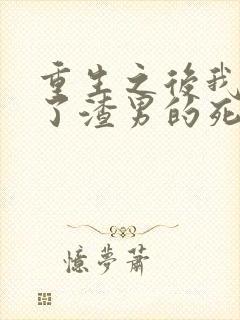 重生之後我
了渣男的死
憶夢蕭